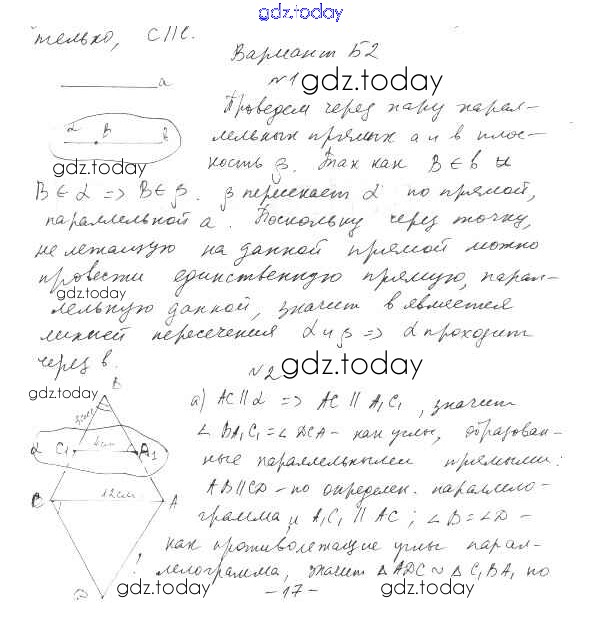 gdz.today
только, C∥l.
Вариант Б2
а
№1
gdz.today
Проведем через пару парал-
α B в
лельных прямых а и в плос-
gdz.today
кость β. Так как B ∈ в и
B ∈ α => B ∈ β. β пересекает α по прямой,
параллельной а. Поскольку через точку,
не лежащую на данной прямой можно
провести единственную прямую, парал-
gdz.today
лельную данной, значит в является
линией пересечения α и β => α проходит
через в.
№2
gdz.today
gdz.today
B
а) AC∥α => AC ∥ A₁C₁, значит
α C₁ A₁
∠BA₁C₁=∠DCA - как углы, образован-
ные параллельными прямыми:
C 12см A
AB∥CD - по определен. параллело-
грамма, и A₁C₁ ∥ AC; ∠B=∠D -
как противолежащие углы парал-
лелограмма, значит △ADC ∾ △C₁BA₁ по
gdz.today
- 17 -
gdz.today